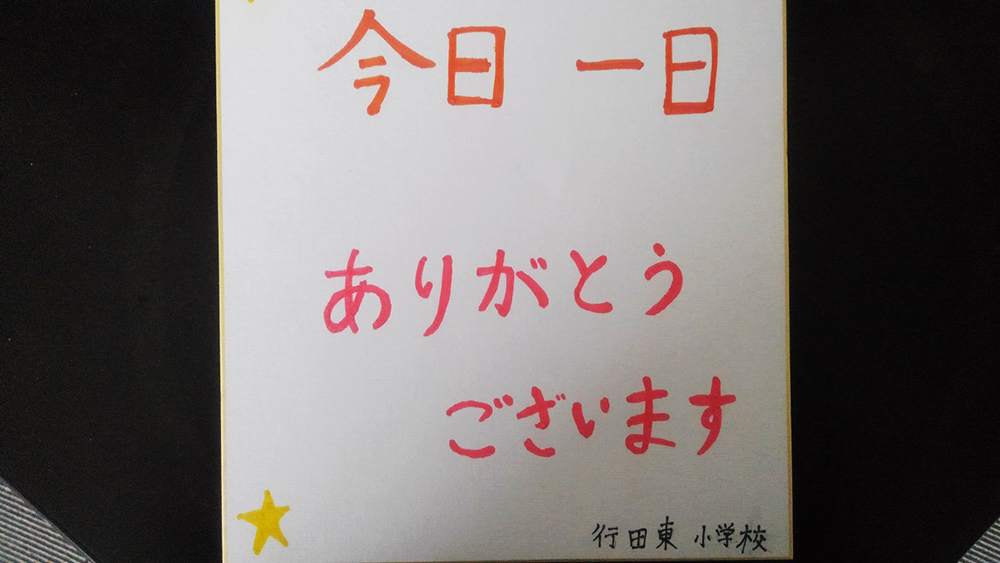 今日 一日
ありがとう
ございます
行田東 小学校